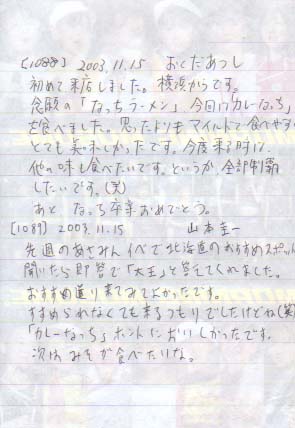 [1088] 2003.11.15 おくだあつし
初めて来店しました。横浜からです。
念願の「なっちラーメン」今回は「カレーなっち」
を食べました。思ったよりもマイルドで食べやすく
とても美味しかったです。今度来る時は、
他の味も食べたいです。というか、全部制覇
したいです。(笑)
あと なっち卒業おめでとう。
[1089] 2003.11.15 山本圭一
先週のあさみんイベで北海道のおすすめスポットを
聞いたら即答で「大王」と答えてくれました。
おすすめ通り来てみてよかったです。
すすめられなくても来るつもりでしたけどね(笑)
「カレーなっち」ホントにおいしかったです。
次はみそが食べたいな。